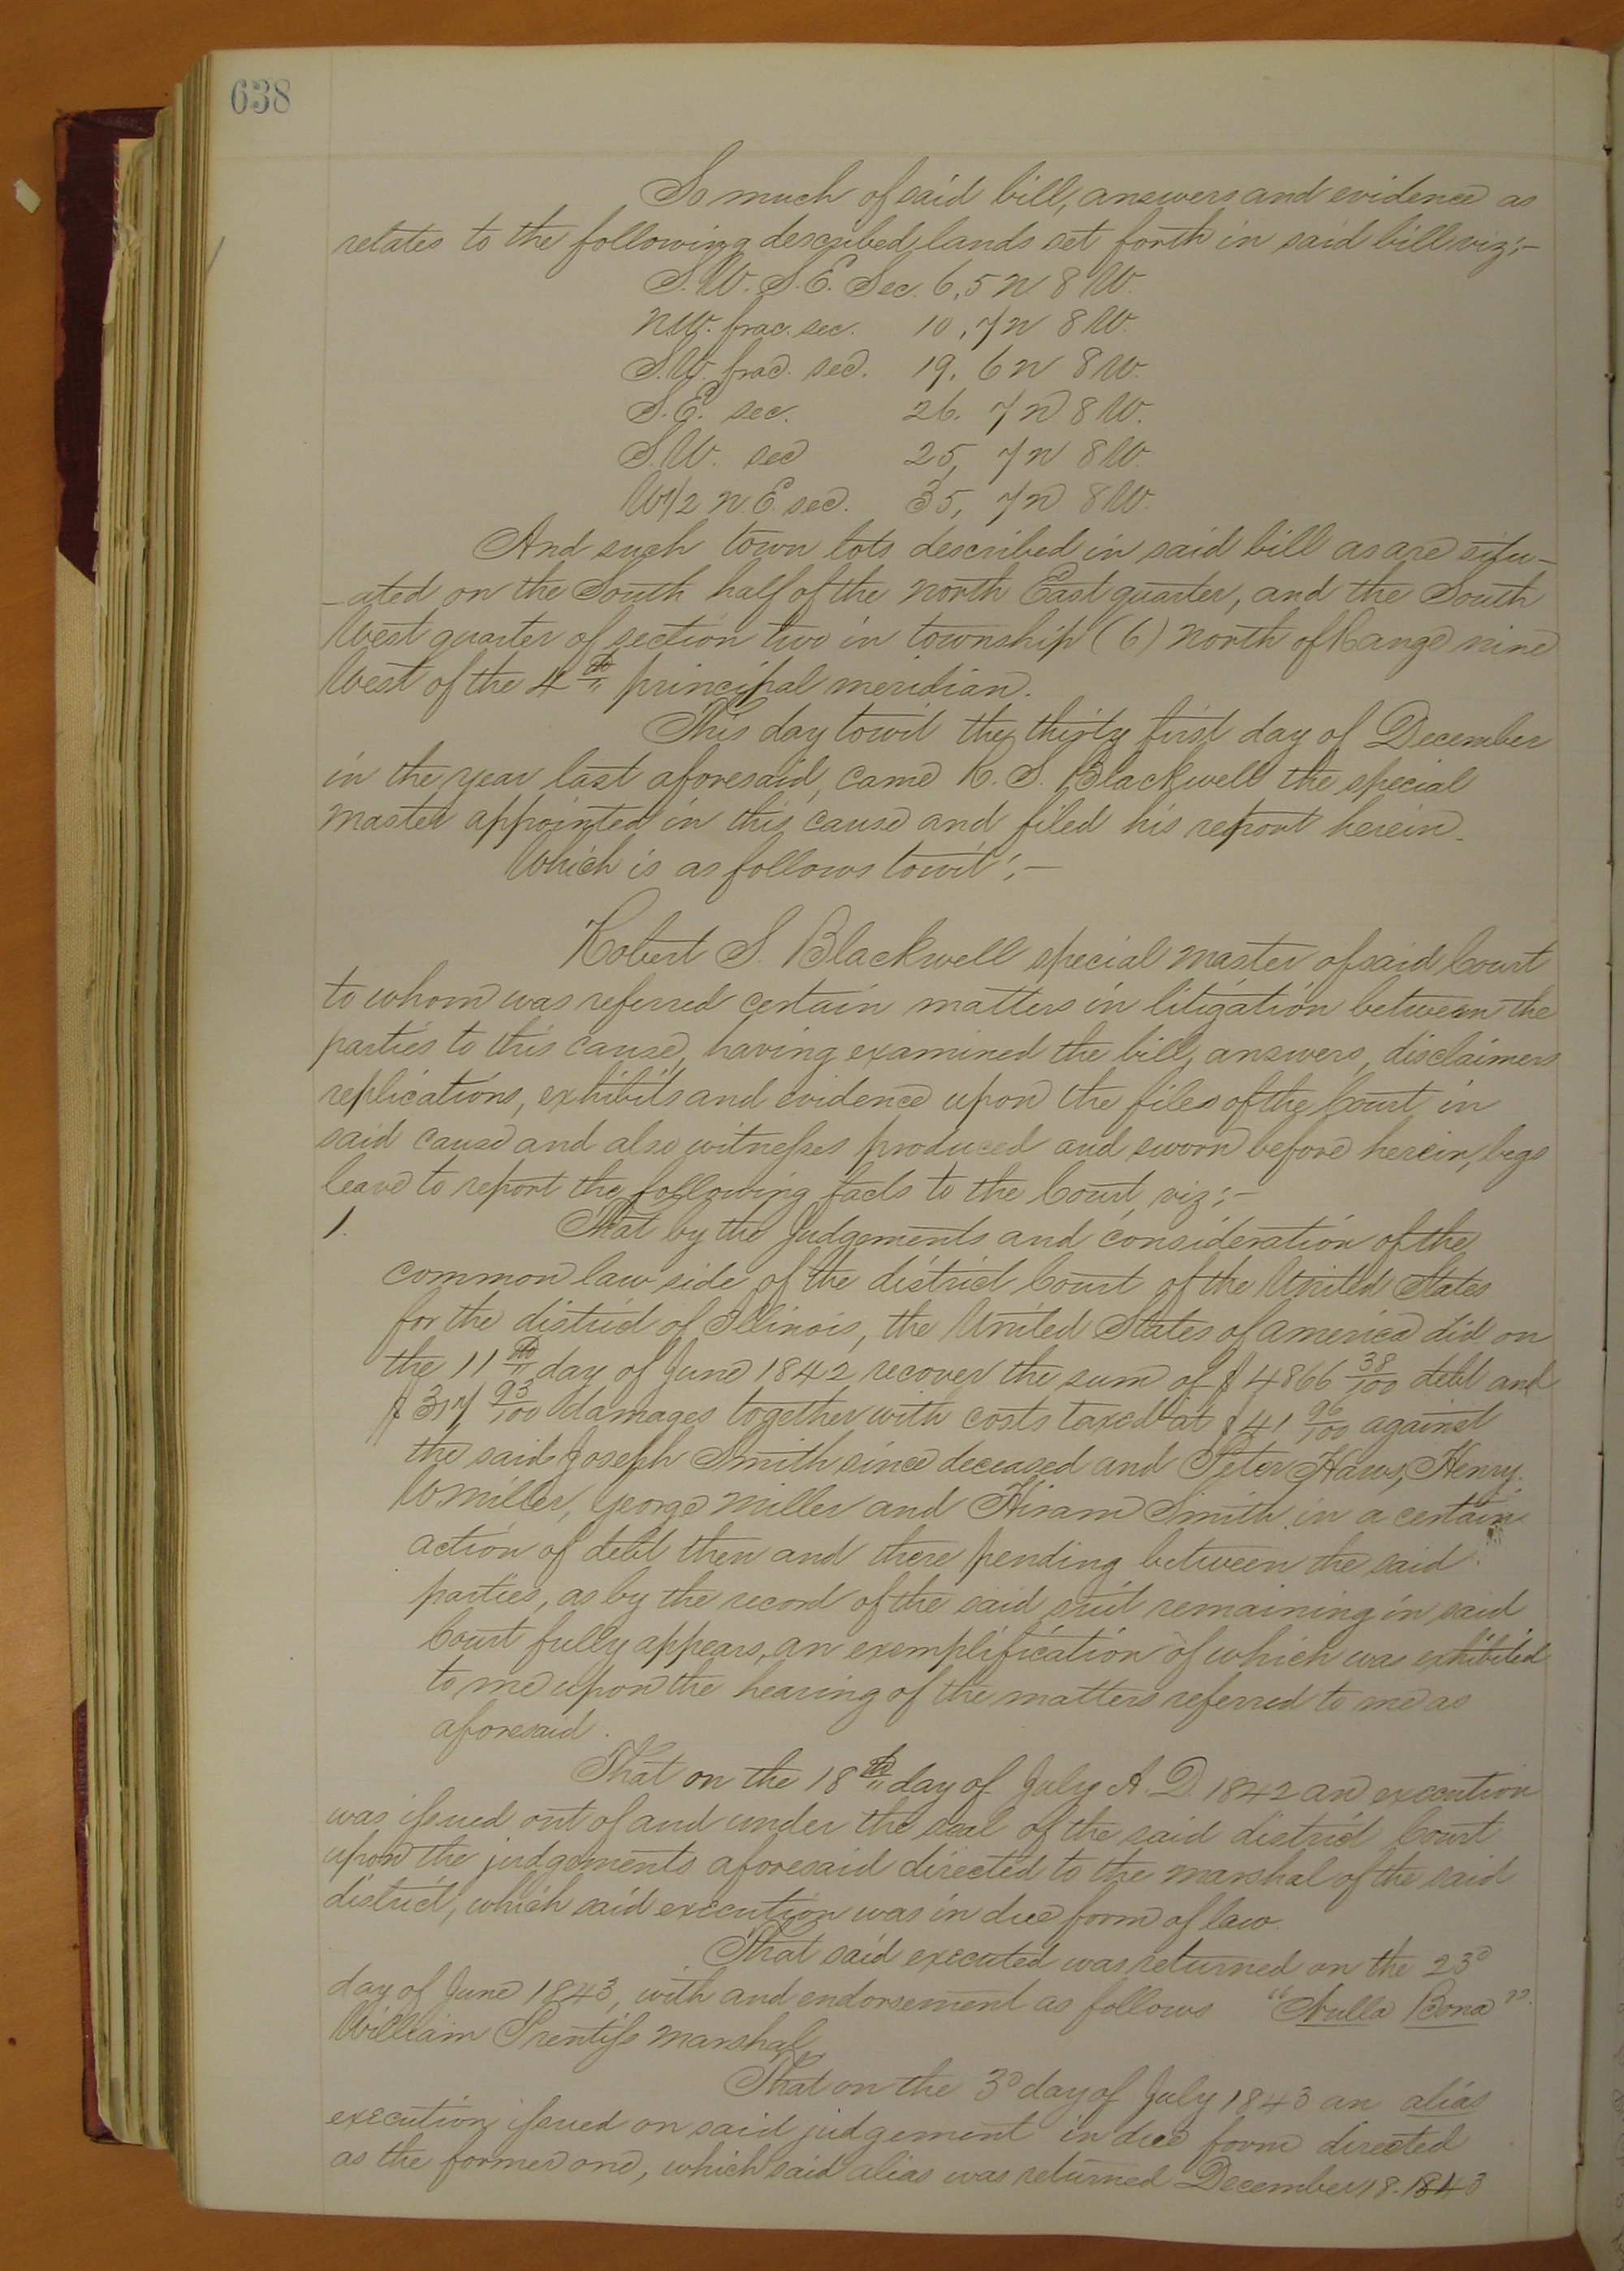 638
So much of said bill, answers and evidence as
relates to the following described lands set forth in said bill viz:-
S.W. S.E. Sec. 6, 5 N. 8 W.
N.W. frac. sec. 10, 7 N 8 W.
S.W. frac. sec. 19, 6 N 8 W.
S.E. sec. 26. 7 N 8 W.
S.W. sec 25, 7 N 8 W.
W 1/2 N.E. sec. 35, 7 N 8 W.
And such town lots described in said bill as are situ-
-ated on the South half of the North East quarter, and the South
West quarter of section two in township (6) North of Range nine
West of the 4th principal meridian.
This day towit the thirty first day of December
in the year last aforesaid, came R. S. Blackwell the special
master appointed in this cause and filed his report herein.
Which is as follows towit:-
Robert S. Blackwell special master of said Court
to whom was referred certain matters in litigation between the
parties to this cause, having examined the bill, answers, disclaimers
replications, exhibits and evidence upon the files of the Court in
said cause and also witnesses produced and sworn before herein, begs
leave to report the following facts to the Court, viz:-
1. That by the Judgements and consideration of the
common law side of the district Court of the United States
for the district of Illinois, the United States of America did on
the 11th day of June 1842 recover the sum of $4866 38/100 debt and
$317 93/100 damages together with costs taxed at $41 96/100 against
the said Joseph Smith since deceased and Peter Haws, Henry
W Miller, George Miller and Hiram Smith in a certain
action of debt then and there pending between the said
parties, as by the record of the said suit remaining in said
Court fully appears, an exemplification of which was exhibited
to me upon the hearing of the matters referred to me as
aforesaid.
That on the 18th day of July A.D. 1842 an execution
was issued out of and under the seal of the said district Court
upon the judgements aforesaid directed to the marshal of the said
district, which said execution was in due form of law.
That said executed was returned on the 23d
day of June 1843, with and endorsement as follows "Nulla Bona".
William Prentiss Marshal
That on the 3d day of July 1843 an alias
execution issued on said judgement in due form directed
as the former one, which said alias was returned December 18. 1843